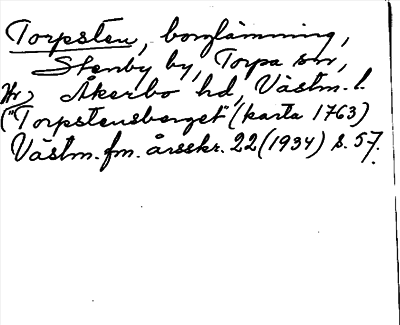 Torpsten, borglämning,
Stenby by, Torpa sn,
Åkerbo hd, Västm. l.
("Torpstensberget" (karta 1763)
Västm. fm. årsskr. 22 (1934) s. 57.